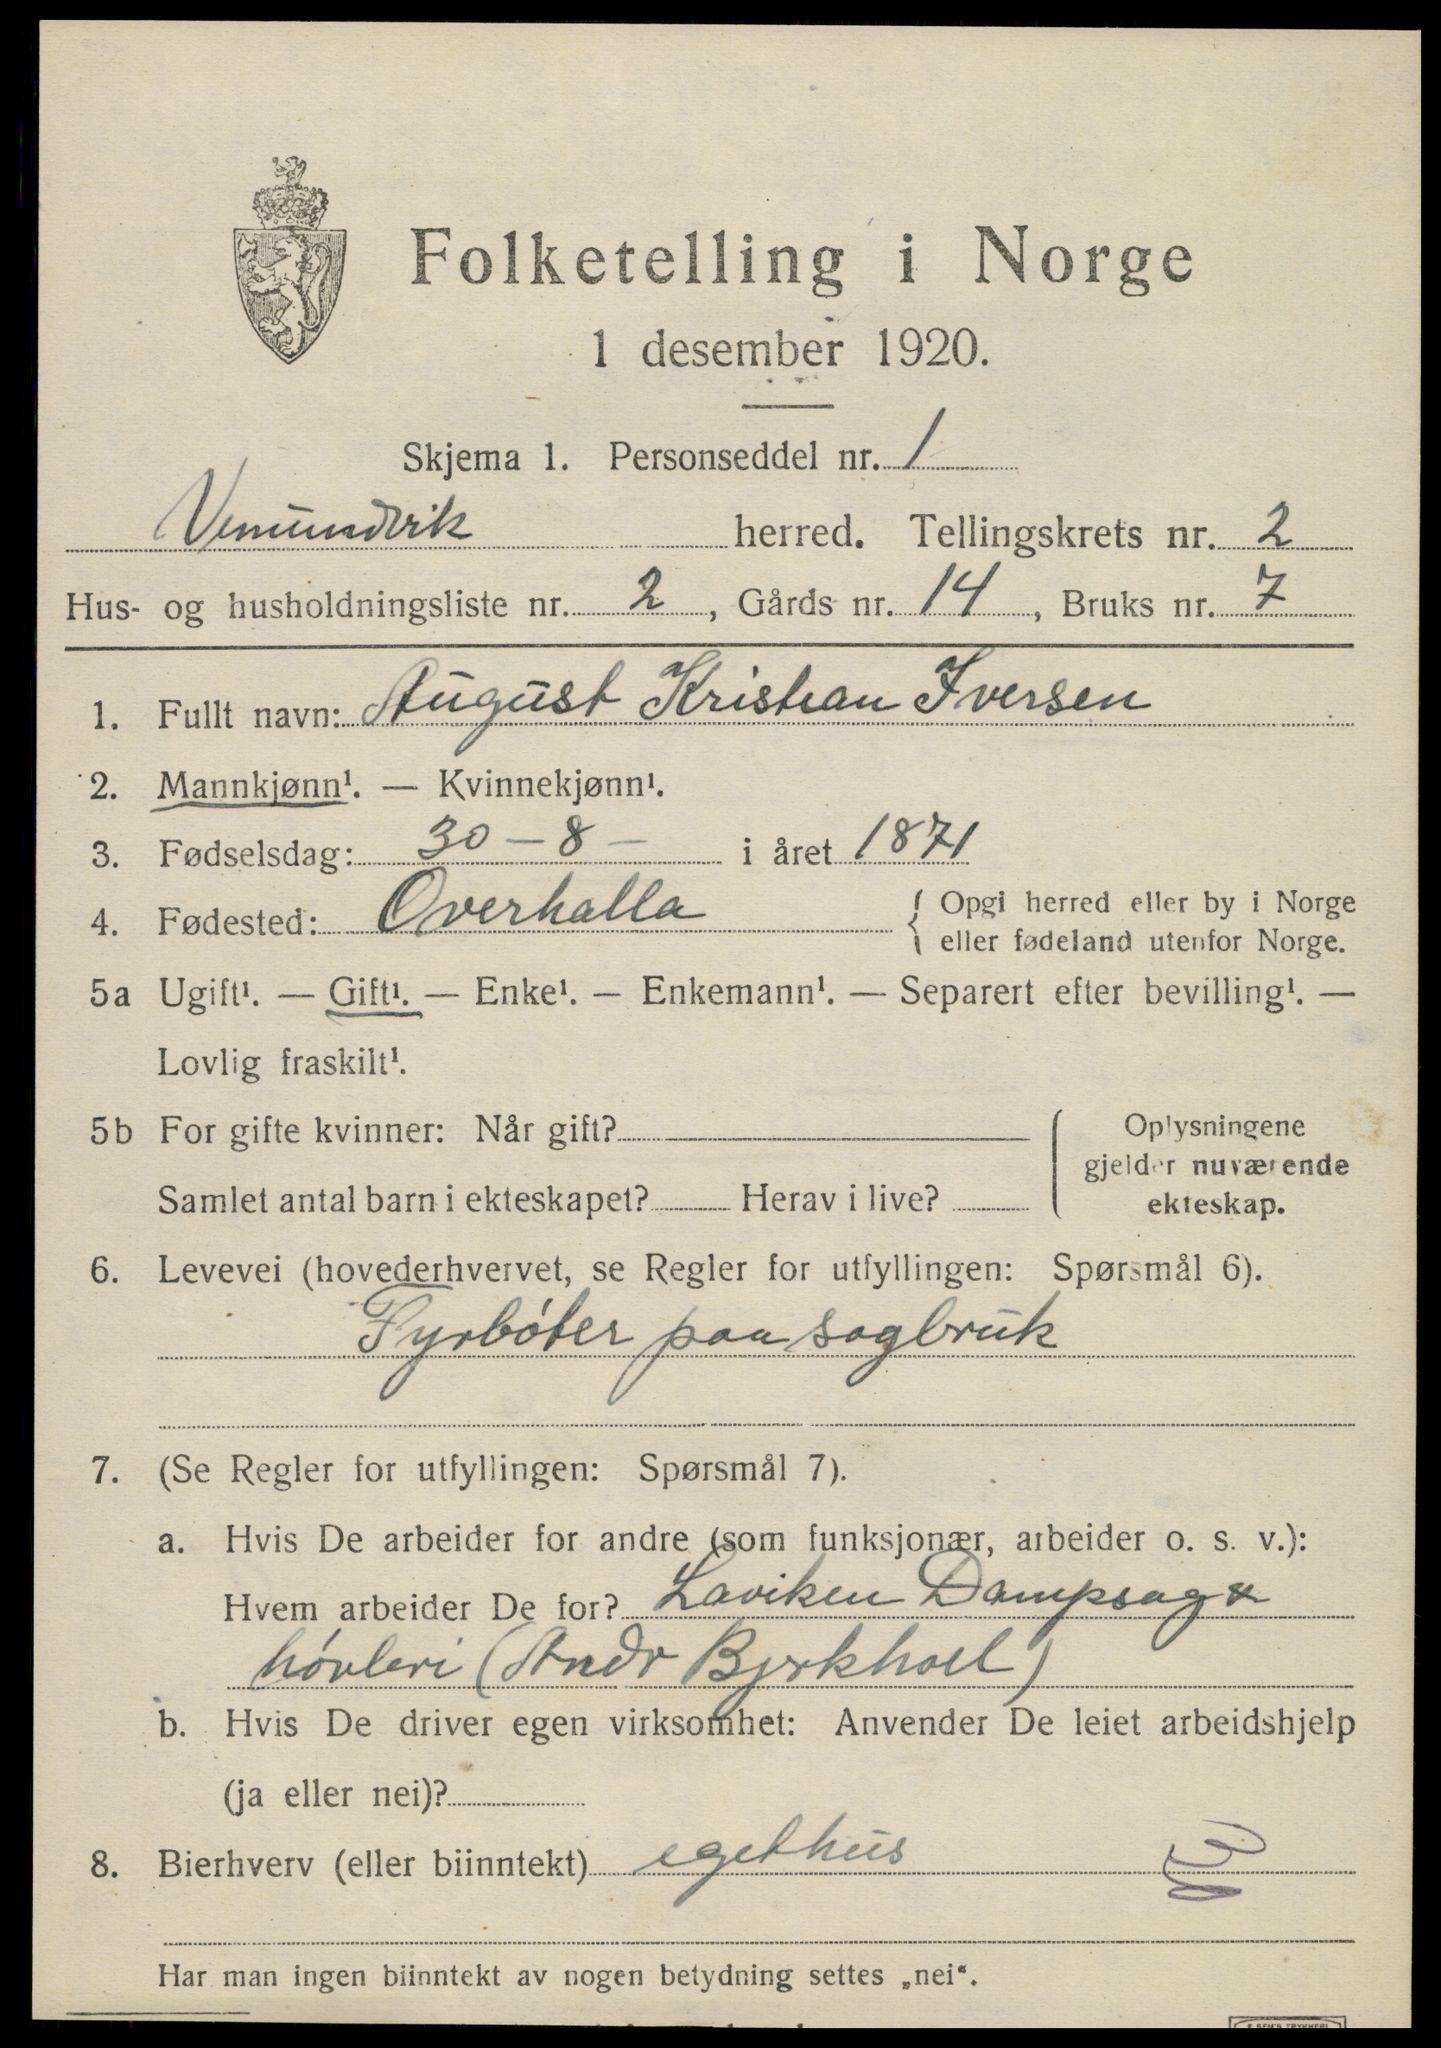 Folketelling i Norge
1 desember 1920.
Skjema 1. Personseddel nr. 1
Vemundvik herred. Tellingskrets nr. 2
Hus- og husholdningsliste nr. 2, Gårds nr. 14, Bruks nr. 7
1. Fullt navn: August Kristian Iversen
2. Mannkjønn¹. — Kvinnekjønn¹.
3. Fødselsdag: 30 – 8 – i året 1871
4. Fødested: Overhalla { Opgi herred eller by i Norge
eller fødeland utenfor Norge.
5a Ugift¹. — Gift¹. — Enke¹. — Enkemann¹. — Separert efter bevilling¹. —
Lovlig fraskilt¹.
5b For gifte kvinner: Når gift?
Samlet antal barn i ekteskapet? Herav i live?
Oplysningene
gjelder nuværende
ekteskap.
6. Levevei (hovederhvervet, se Regler for utfyllingen: Spørsmål 6).
Fyrbóter paa sagbruk
7. (Se Regler for utfyllingen: Spørsmål 7).
a. Hvis De arbeider for andre (som funksjonær, arbeider o. s. v.):
Hvem arbeider De for? Laviken Dampsag &
hóvleri (Andr Bjerkhoel)
b. Hvis De driver egen virksomhet: Anvender De leiet arbeidshjelp
(ja eller nei)?
8. Bierhverv (eller biinntekt) eget hus
Har man ingen biinntekt av nogen betydning settes „nei“.